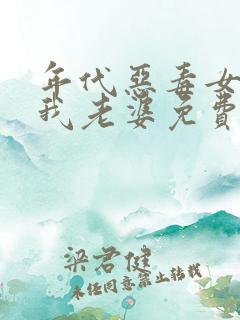 年代惡毒女
我老婆免費
梁君健
未经同意禁止转载